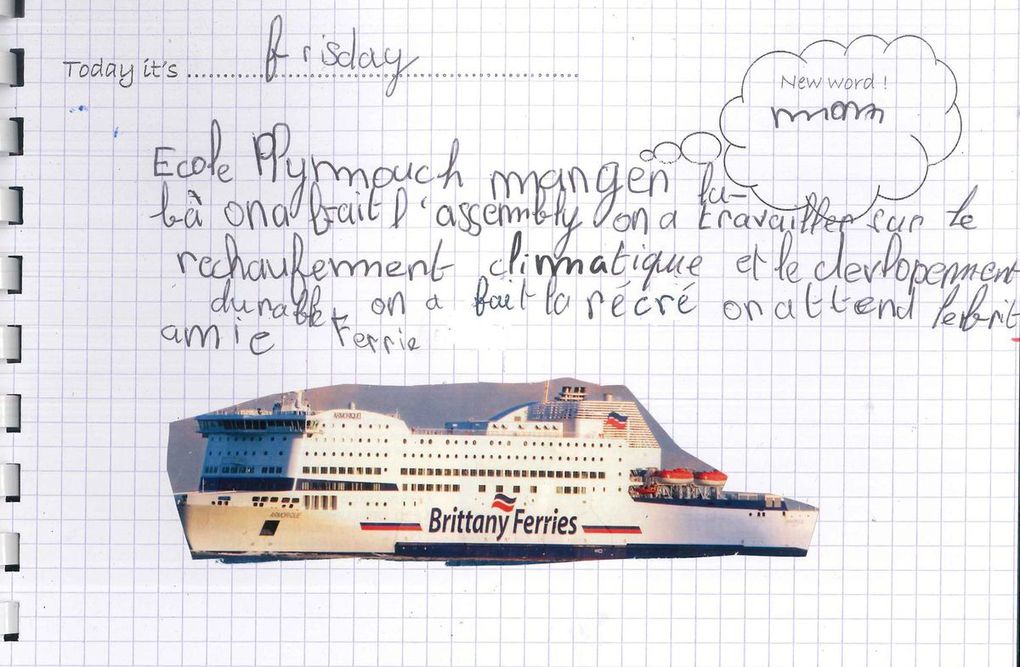 Today it's frisday
New word !
mom
Ecole Plymouch mangen la-
bà ona fait l'assembly on a travailler sur le
rechaufenment climatique et le devlopenment
durable, on a fait la récré on attend
amie Ferrie
ARMORIQUE
ARMORIQUE
Brittany Ferries